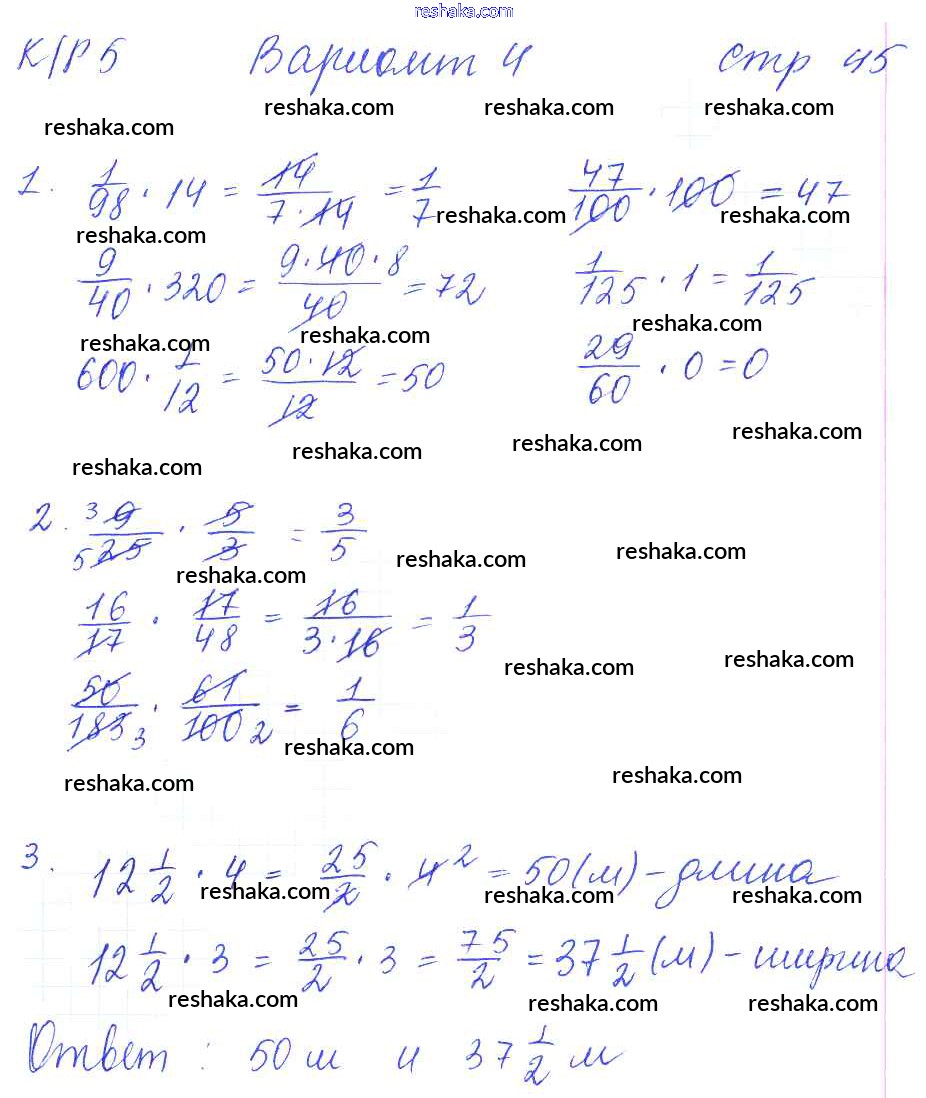 reshaka.com
К/Р 5 Вариант 4 стр 45
reshaka.com reshaka.com reshaka.com
reshaka.com
1. 1/98 · 14 = 14/(7 · 14) = 1/7 47/100 · 100 = 47
reshaka.com reshaka.com
reshaka.com
9/40 · 320 = (9 · 40 · 8)/40 = 72 1/125 · 1 = 1/125
reshaka.com
reshaka.com reshaka.com
600 · 1/12 = (50 · 12)/12 = 50 29/60 · 0 = 0
reshaka.com
reshaka.com reshaka.com
reshaka.com
2. 3 9/25 5 · 5/3 = 3/5
reshaka.com reshaka.com
reshaka.com
16/17 · 17/48 = 16/(3 · 16) = 1/3
reshaka.com reshaka.com
50/183 3 · 61/100 2 = 1/6
reshaka.com
reshaka.com reshaka.com
3. 12 1/2 · 4 = 25/2 · 4 2 = 50 (м) - длина
reshaka.com reshaka.com reshaka.com
12 1/2 · 3 = 25/2 · 3 = 75/2 = 37 1/2 (м) - ширина
reshaka.com reshaka.com reshaka.com
Ответ : 50 м и 37 1/2 м